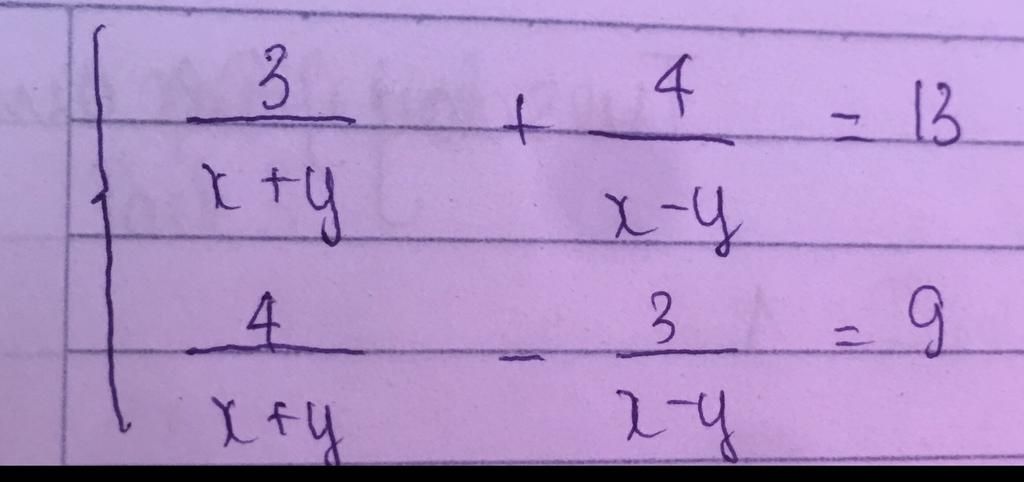 3/(x+y) + 4/(x-y) = 13
4/(x+y) - 3/(x-y) = 9